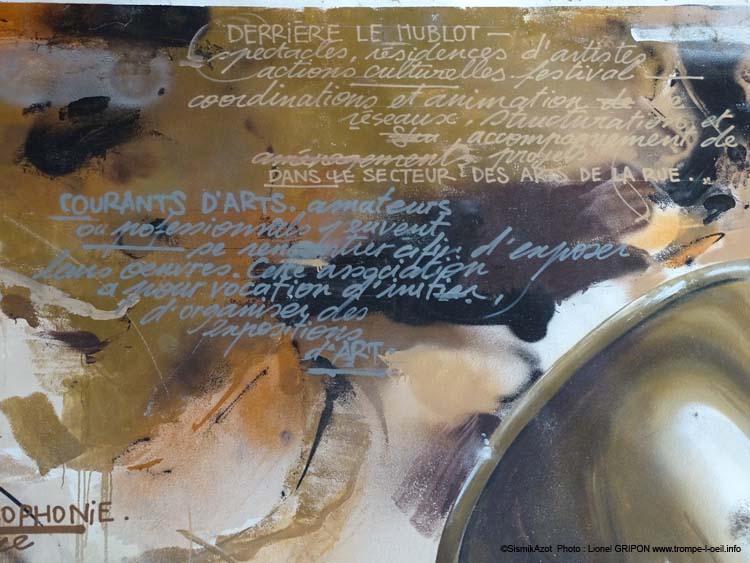 DERRIÈRE LE HUBLOT -
spectacles, résidences d'artistes
actions culturelles festival
coordinations et animation de
réseaux, structurations et
accompagnement de
aménagements
DANS LE SECTEUR DES ARTS DE LA RUE.
COURANTS D'ARTS. amateurs
ou professionnels peuvent
se rencontrer afin d'exposer
leurs oeuvres. Cette association
a pour vocation d'initier,
d'organiser des
expositions
d'ART-
OPHONiE.
©SismikAzot Photo : Lionel GRIPON www.trompe-l-oeil.info